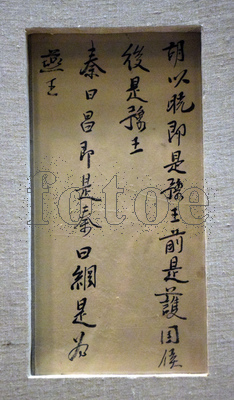 胡以晄即是豫王前是護國侯
後是豫王
秦日昌即是秦日綱是为
燕王
fotoe